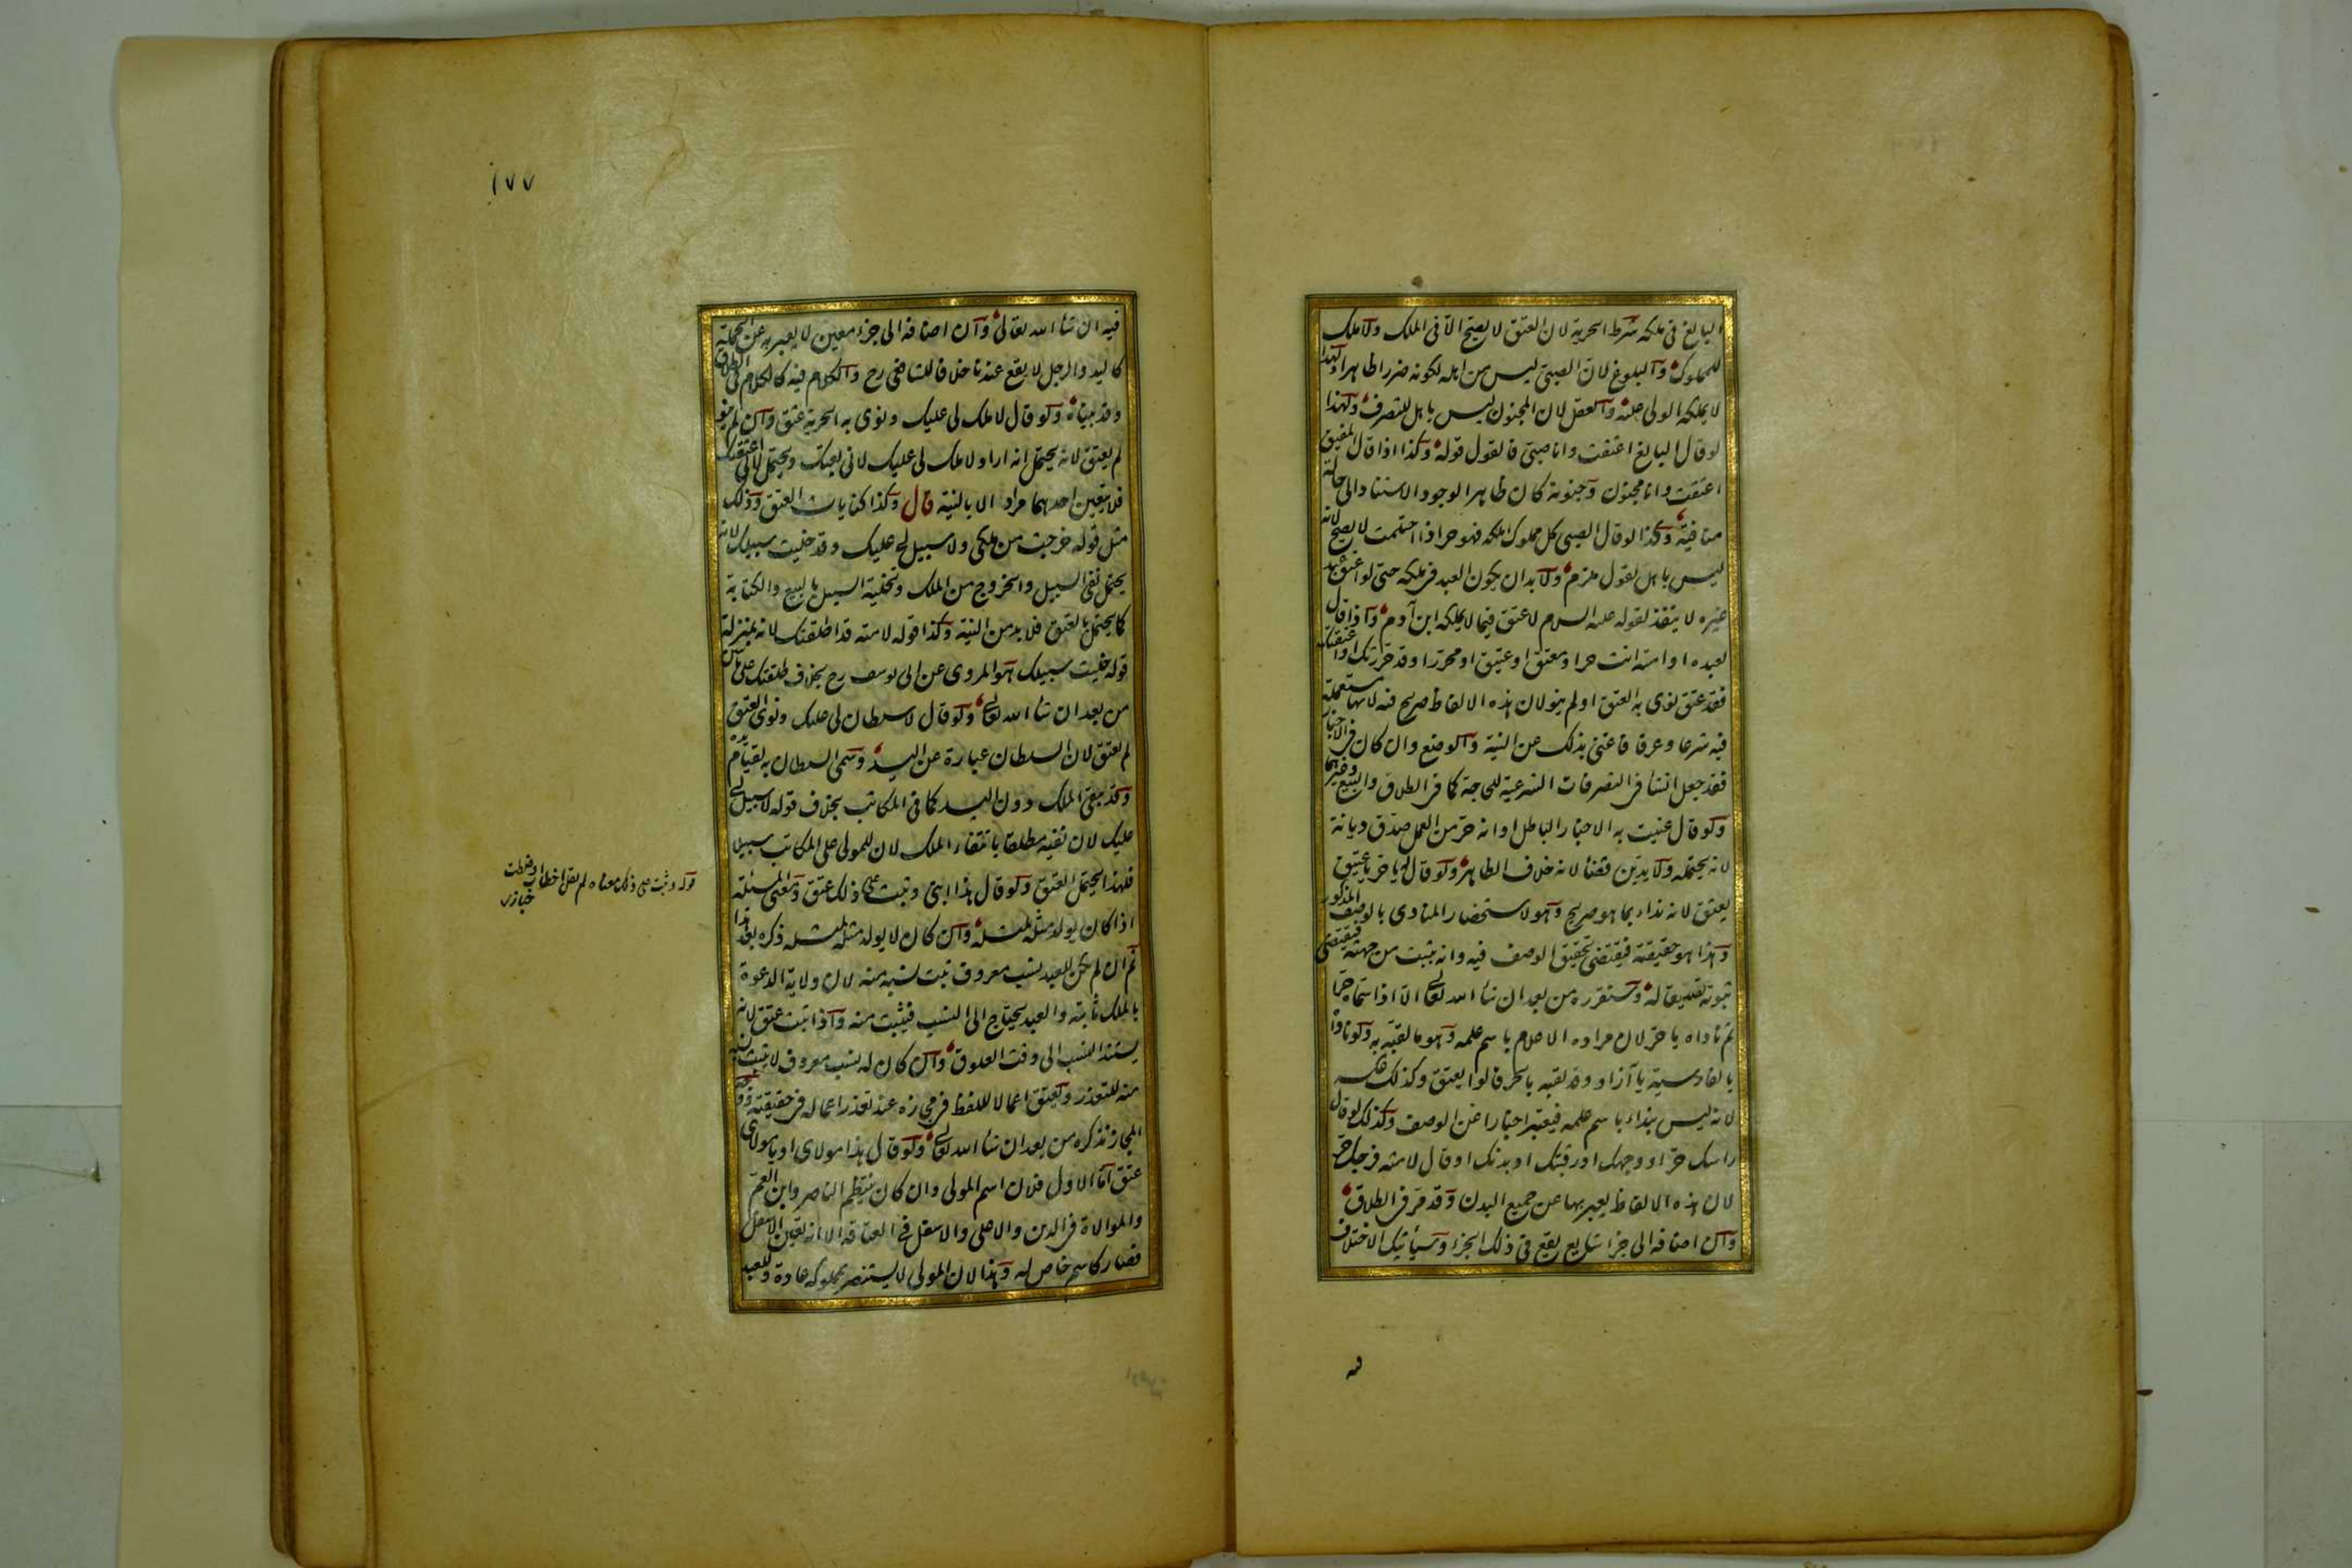 البالغ فى ملكه شرط الحرية لان العتق لا يصح الا فى الملك ولا ملك
للمملوك والبلوغ لان الصبى ليس من اهله لكونه ضررا ظاهرا ولهذا
لا يملكه الولى عليه والعقل لان المجنون ليس باهل للتصرف ولهذا
لو قال البالغ اعتقت وانا صبى فالقول قوله وكذا اذا قال المفيق
اعتقت وانا مجنون وجنونه كان ظاهرا لوجود الاسناد الى حالة
منافية وكذا لو قال الصبى كل مملوك املكه فهو حر اذا احتلمت لا يصح لانه
ليس باهل لقول ملزم ولا بد ان يكون العبد فى ملكه حتى لو اعتق عبد
غيره لا ينفذ لقوله عليه السلام لا عتق فيما لا يملكه ابن آدم واذا قال
لعبده او امته انت حر او معتق او عتيق او محرر او قد حررتك او اعتقتك
فقد عتق نوى به العتق او لم ينو لان هذه الالفاظ صريح فيه لانها مستعملة
فيه شرعا وعرفا فاغنى بذلك عن النية والوضع وان كان فى الاخبار
فقد جعل انشا فى التصرفات الشرعية للحاجة كما فى الطلاق والبيع وغيرهما
ولو قال عنيت به الاخبار الباطل او انه حر من العمل صدق ديانة
لانه يحتمله ولا يدين قضاء لانه خلاف الظاهر ولو قال له يا حر يا عتيق
يعتق لانه نداء بما هو صريح وهو لاستحضار المنادى بالوصف المذكور
وهذا هو حقيقته فيقتضى تحقيق الوصف فيه وانه يثبت من جهته فيقتضى
ثبوته تصديقا له وسنقرره من بعد ان شاء الله تعالى الا اذا سماه حرا
ثم ناداه يا حر لان مراده الاعلام باسم علمه وهو ما لقبه به ولو ناداه
بالفارسية يا آزاد وقد لقبه بالحر قالوا يعتق وكذلك عكسه
لانه ليس بنداء باسم علمه فيعتبر اخبارا عن الوصف وكذلك لو قال
راسك حر او وجهك او رقبتك او بدنك او قال لامته فرجك حر
لان هذه الالفاظ يعبر بها عن جميع البدن وقد مر فى الطلاق
وان اضافه الى جزء شايع يقع فى ذلك الجزء وسيأتيك الاختلاف
١٧٧
فيه ان شاء الله تعالى وان اضافه الى جزء معين لا يعبر به عن الجملة
كاليد والرجل لا يقع عندنا خلافا للشافعى رح والكلام فيه كالكلام فى الطلاق
وقد بيناه ولو قال لا ملك لى عليك ونوى به الحرية عتق وان لم ينو
لم يعتق لانه يحتمل انه اراد لا ملك لى عليك لانى بعتك ويحتمل لانى اعتقتك
فلا يتعين احدهما مرادا الا بالنية قال وكذا كنايات العتق وذلك
مثل قوله خرجت من ملكى ولا سبيل لى عليك وقد خليت سبيلك لانه
يحتمل نفى السبيل والخروج من الملك وتخلية السبيل بالبيع والكتابة
كما يحتمل بالعتق فلا بد من النية وكذا قوله لامته قد اطلقتك لانه بمنزلة
قوله خليت سبيلك هو المروى عن ابى يوسف رح بخلاف طلقتك على ما نبين
من بعد ان شاء الله تعالى ولو قال لا سلطان لى عليك ونوى العتق
لم يعتق لان السلطان عبارة عن اليد وسمى السلطان به لقيام يده
وقد يبقى الملك دون اليد كما فى المكاتب بخلاف قوله لا سبيل لى
عليك لان نفيه مطلقا بانتفاء الملك لان للمولى على المكاتب سبيلا
فلهذا يحتمل العتق ولو قال هذا ابنى وثبت على ذلك عتق ومعنى المسئلة
اذا كان يولد مثله لمثله وان كان لا يولد مثله لمثله ذكره بعد هذا
ثم ان لم يكن للعبد نسب معروف ثبت نسبه منه لان ولاية الدعوة
بالملك ثابتة والعبد يحتاج الى النسب فيثبت منه واذا ثبت عتق لانه
يستند النسب الى وقت العلوق وان كان له نسب معروف لا يثبت نسبه
منه للتعذر ويعتق اعمالا للفظ فى مجازه عند تعذر اعماله فى حقيقته ووجه
المجاز نذكره من بعد ان شاء الله تعالى ولو قال هذا مولاى او يا مولاى
عتق اما الاول فلان اسم المولى وان كان ينتظم الناصر وابن العم
والموالاة فى الدين والاعلى والاسفل فى العتاقة الا انه تعين الاسفل
فصار كاسم خاص له وهذا لان المولى لا يستنصر بمملوكه عادة وللعبد
قوله وثبت على ذلك معناه لم يقل اخطات وغلطت
خبازى